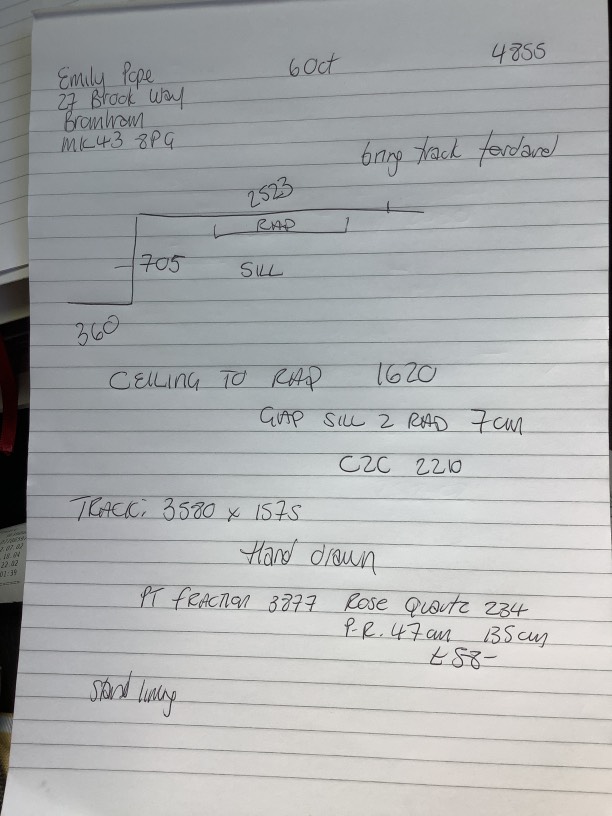 6 Oct
4855
Emily Pope
27 Brook Way
Bromham
MK43 8PG
bring track forward
2523
RAD
705
SILL
360
CEILING TO RAD 1620
GAP SILL 2 RAD 7cm
C2C 2210
TRACK: 3580 x 1575
Hand drawn
PT FRACTION 3877 ROSE QUARTZ 234
P.R. 47cm 135cm
£58-
stand lining